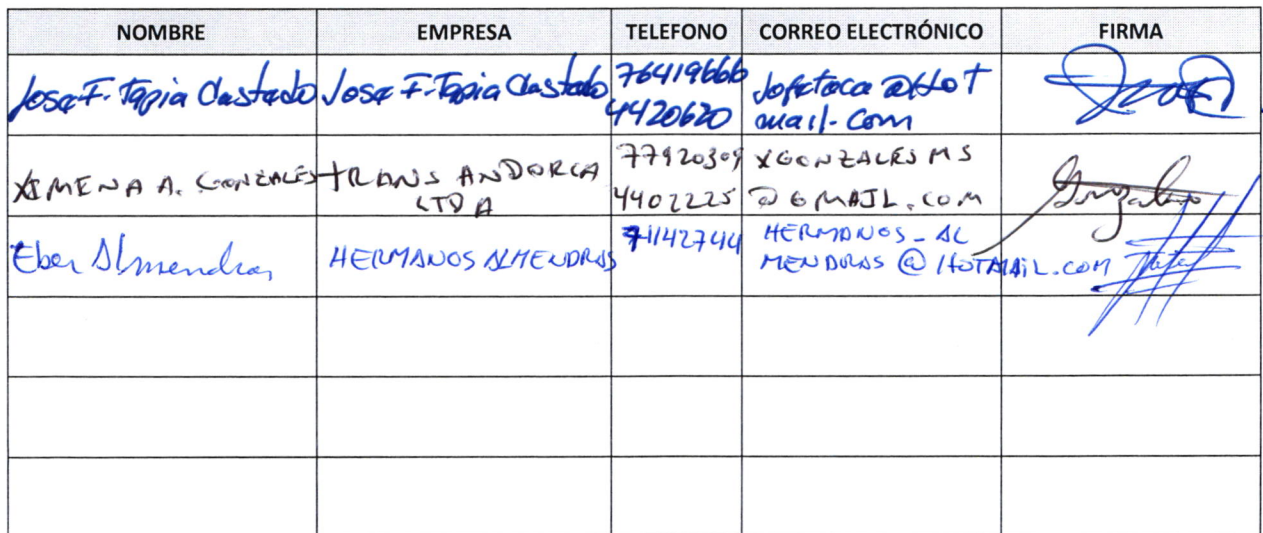 NOMBRE EMPRESA TELEFONO CORREO ELECTRÓNICO FIRMA
Jose F. Tapia Clastado Jose F. Tapia Clastado 76419666 Jofataca @Hot
4420620 mail.com
XIMENA A. GONZALES TRANS ANDORCA 77920309 XGONZALES MS
LTDA 4402225 @GMAIL.COM
Eber Almendras HERMANOS ALMENDRAS 71142744 HERMANOS_AL
MENDRAS @ HOTMAIL.COM